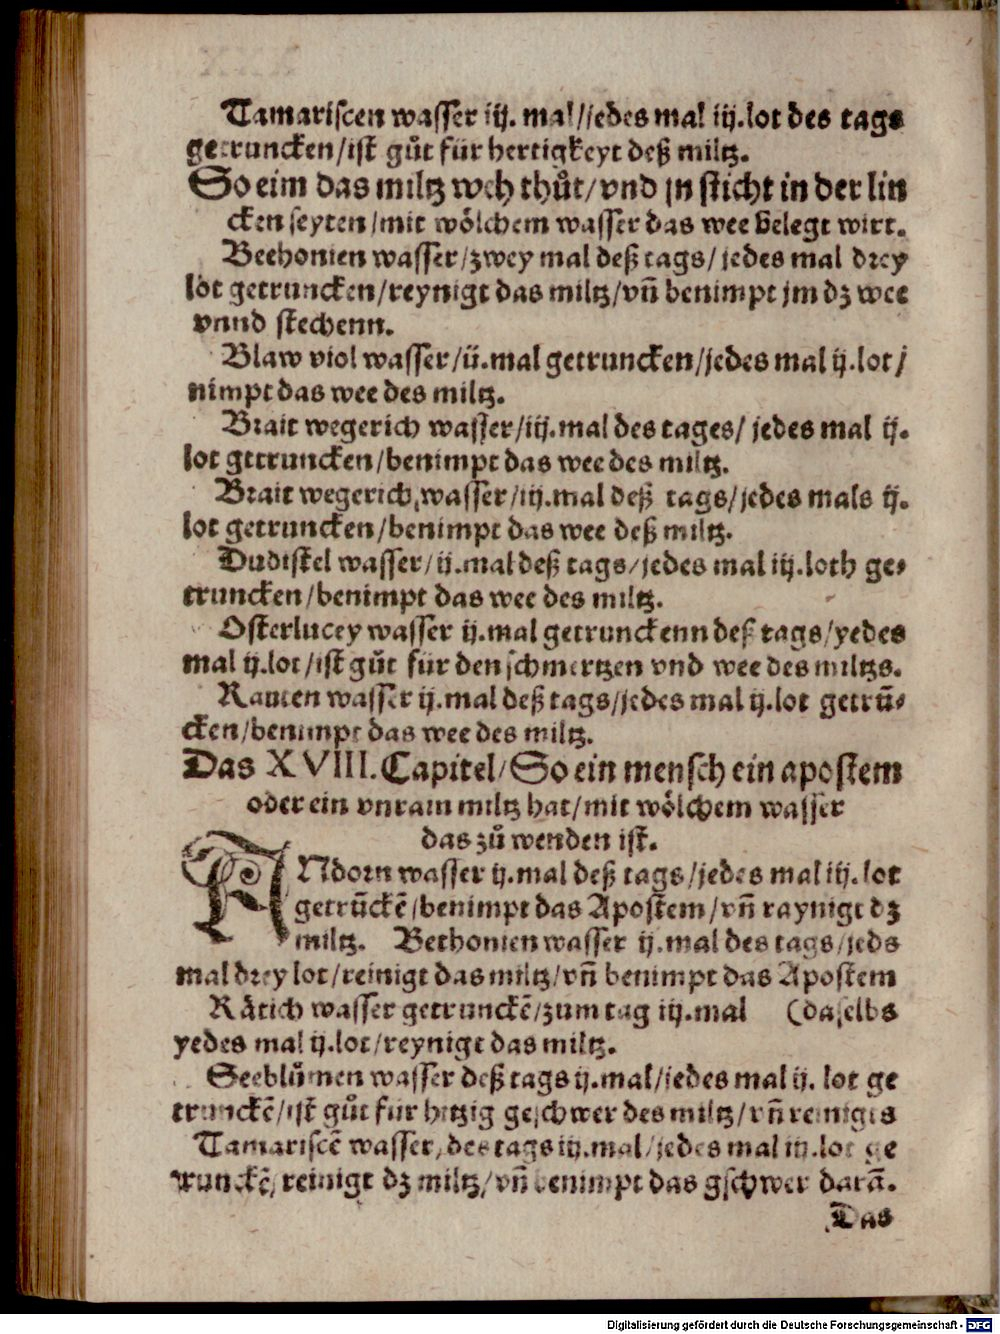 Tamariscen wasser iij. mal/jedes mal iij.lot des tags
getruncken/ist gůt für hertigkeyt deß miltz.
So eim das miltz weh thůt/vnd jn sticht in der lin
cken seyten/mit wölchem wasser das wee belegt wirt.
Bethonien wasser/zwey mal deß tags/jedes mal drey
lot getruncken/reynigt das miltz/vñ benimpt jm dz wee
vnnd stechenn.
Blaw viol wasser/ij.mal getruncken/jedes mal ij.lot/
nimpt das wee des miltz.
Brait wegerich wasser/iij.mal des tages/ jedes mal ij.
lot getruncken/benimpt das wee des miltz.
Brait wegerich wasser/iij.mal deß tags/jedes mals ij.
lot getruncken/benimpt das wee deß miltz.
Dudistel wasser/ij.mal deß tags/jedes mal iij.loth ge⸗
truncken/benimpt das wee des miltz.
Osterlucey wasser ij.mal getrunckenn deß tags/yedes
mal ij.lot/ist gůt für den schmertzen vnd wee des miltzs.
Rauten wasser ij.mal deß tags/jedes mal ij.lot getrū⸗
cken/benimpt das wee des miltz.
Das XVIII.Capitel/So ein mensch ein apostem
oder ein vnrain miltz hat/mit wölchem wasser
das zů wenden ist.
ANdorn wasser ij.mal deß tags/jedes mal iij.lot
getrūckē/benimpt das Apostem/vñ raynigt dz
miltz. Bethonien wasser ij.mal des tags/jeds
mal drey lot/reinigt das miltz/vñ benimpt das Apostem
Rätich wasser getrunckē/zum tag iij.mal (daselbs
yedes mal ij.lot/reynigt das miltz.
Seeblůmen wasser deß tags ij.mal/jedes mal ij. lot ge
trunckē/ist gůt für hitzig geschwer des miltz/vñ reinigts
Tamariscē wasser/des tags iij.mal/jedes mal iij.lot ge
trunckē/reinigt dz miltz/vñ benimpt das gschwer darā.
Das
Digitalisierung gefördert durch die Deutsche Forschungsgemeinschaft - DFG